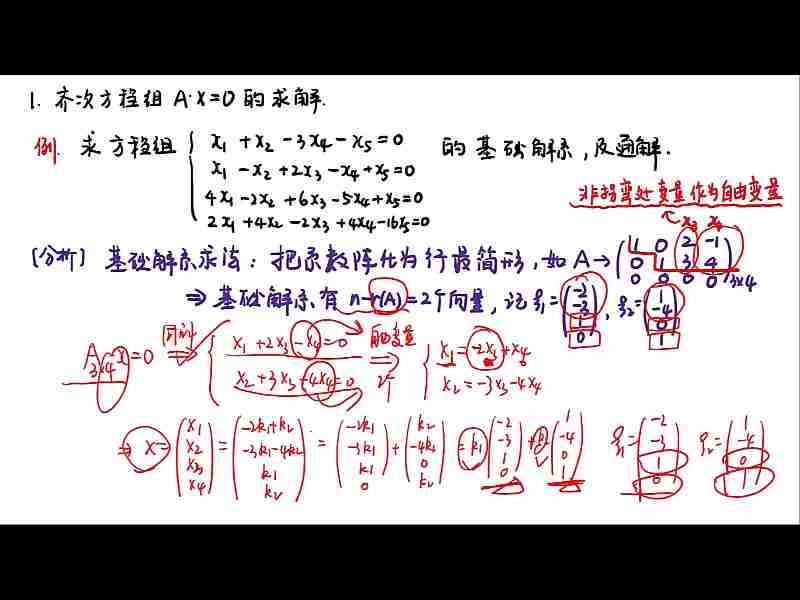 1. 齐次方程组 A·X=0 的求解.
例. 求方程组 { x₁ + x₂ - 3x₄ - x₅ = 0 的基础解系, 及通解.
x₁ - x₂ + 2x₃ - x₄ + x₅ = 0
4x₁ - 2x₂ + 6x₃ - 5x₄ + x₅ = 0
2x₁ + 4x₂ - 2x₃ + 4x₄ - 16x₅ = 0
非拐弯处变量作为自由变量
x₃ x₄
[分析] 基础解系求法: 把系数阵化为行最简形, 如 A → (1 0 2 -1
0 1 3 4
0 0 0 0)3×4
⇒ 基础解系有 n-r(A) = 2个向量, 记 ξ₁ = (-2 -3 1 0), ξ₂ = (1 -4 0 1)
A₃ₓ₄ X = 0 同解 ⇒ { x₁ + 2x₃ - x₄ = 0 自由变量 ⇒ 2个 { x₁ = -2x₃ + x₄
x₂ + 3x₃ + 4x₄ = 0 x₂ = -3x₃ - 4x₄
⇒ X = (x₁ x₂ x₃ x₄) = (-2k₁+k₂ -3k₁-4k₂ k₁ k₂) = (-2k₁ -3k₁ k₁ 0) + (k₂ -4k₂ 0 k₂) = k₁ (-2 -3 1 0) + k₂ (1 -4 0 1) ξ₁ = (-2 -3 1 0) ξ₂ = (1 -4 0 1)